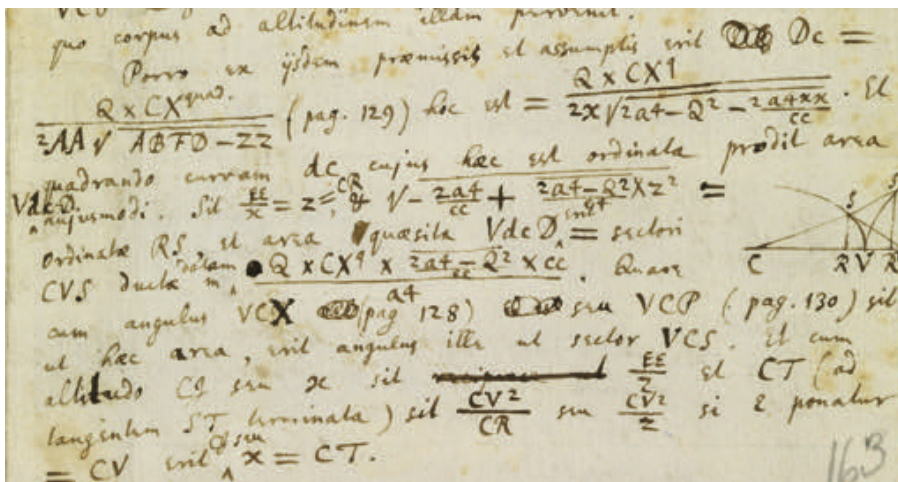 quo corpus ad altitudinem illam pervenit.
Porro ex ijsdem præmissis et assumptis erit Dc =
Q × CX quad. / 2AA √ABFD − ZZ (pag. 129) hoc est = Q × CX q / 2x√2a4 − Q² − 2a4xx/cc . Et
quadrando curvam dc cujus hæc est ordinata prodit area
VdcD hujusmodi. Sit EE/x = z = CR & √− 2a4/cc + 2a4 − Q² × z²/E4 =
ordinatæ RS, et area quæsita VdcD erit = sectori
CVS ducto in datam Q × CX q × 2a4/cc − Q² × cc / a4 . Quare
cum angulus VCX (pag 128) seu VCP (pag. 130) sit
ut hæc area, erit angulus ille ut sector VCS. Et cum
altitudo CQ seu x sit EE/z et CT (ad
tangentem ST terminata) sit CV²/CR seu CV²/z si E ponatur
= CV erit CQ seu x = CT.
S S
C R V R
163